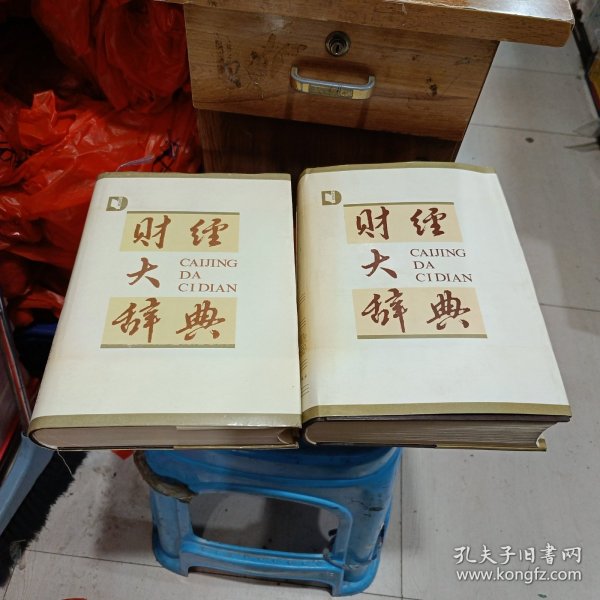 财经
大
CAIJING
DA
CIDIAN
辞典
财经
大
CAIJING
DA
CIDIAN
辞典
孔夫子旧書网
www.kongfz.com